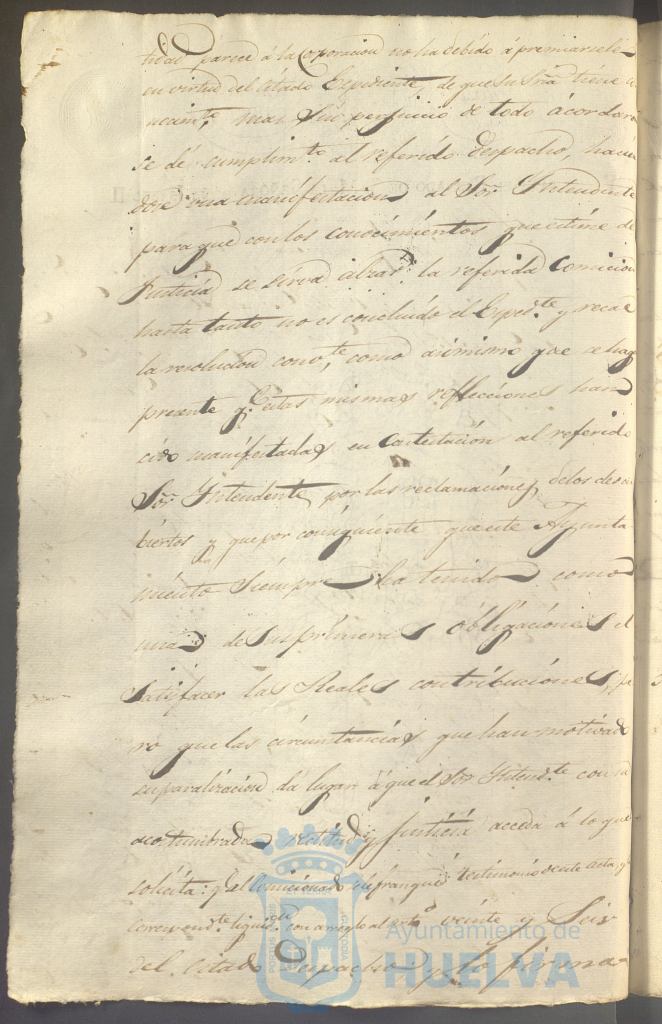 tidad parece á la Corporacion no ha debido ápremiarsele
en virtud del citado Expediente, de que su Sria tiene co
nocimto, mas sin perjuicio de todo acordaro
se dé cumplimto al referido despacho, hacien
dose una manifestacion al Sor Yntendente
para que con los conocimientos que estime de
Justicia se sirva alzar la referida Comicion
hasta tanto no es concluido el Expedte y recae
la resolucion convte, como asimismo que se hag
presente q. estas mismas reflecciones han
cido manifestadas en Contestacion al referido
Sor Yntendente por las reclamaciones de los descu
biertos y que por consiguiente que este Ayunta
miento siempre ha tenido como
una de sus primeras obligaciones el
satisfacer las Reales contribuciones, pe
ro que las circunstancias que han motivado
su paralizacion dá lugar á que el Sor Yntendte con su
acostumbrada rectitud y Justicia acceda á lo que
solicita: y al Comicionado se franqué testimonio de este acta y
correspondte liquidon con arreglo al arto veinte y Seis
del citado Despacho y lo firma
Ayuntamiento de
HUELVA